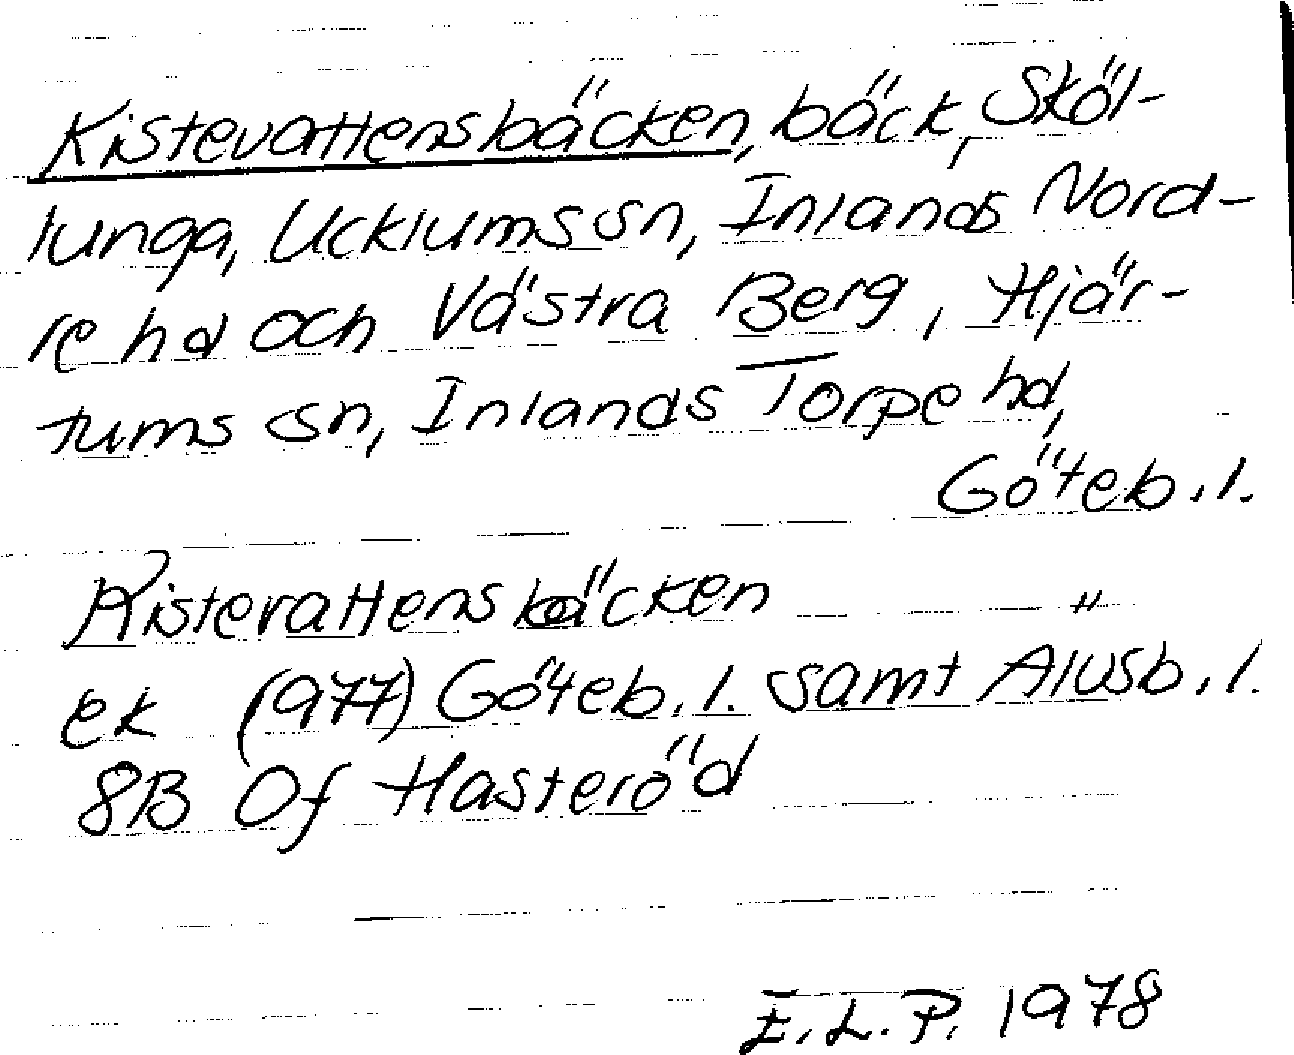 Kistevattensbäcken, bäck, Sköl-
lunga, Ucklums sn, Inlands Nord-
re hd och Västra Berg, Hjär-
tums sn, Inlands Torpe hd,
Göteb. l.
Kistevattensbäcken
ek (977) Göteb. l. samt Älvsb. l.
8B 0f Hasteröd
E.L.P. 1978